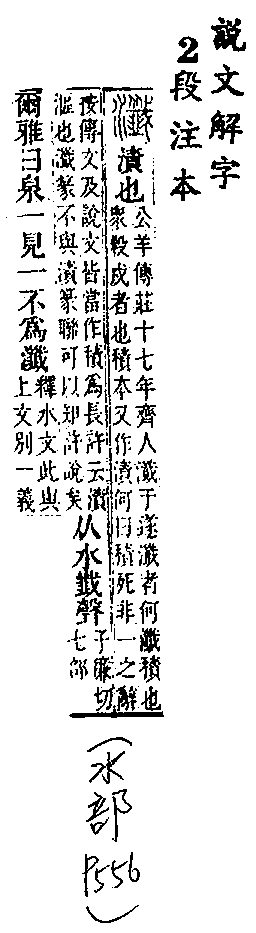 說文解字
2段注本
漬也
公羊傳莊十七年齊人瀐于遂瀐者何瀐積也
衆殺戍者也積本又作漬何曰積死非一之辭
按傳文及說文皆當作積為長許云漬
漚也瀐篆不與漬篆聯可以知許說矣
从水韱聲
子廉切
七部
爾雅曰泉一見一不爲瀐
釋水文此與
上文別一義
(水部
P556)